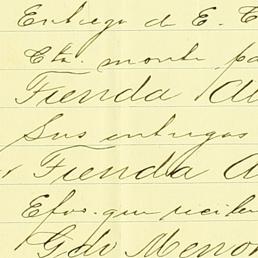 Entrega de E.
Cta. monta
Tienda
Sus entregas
Tienda
Efvo. que recibe
Gdo Menor